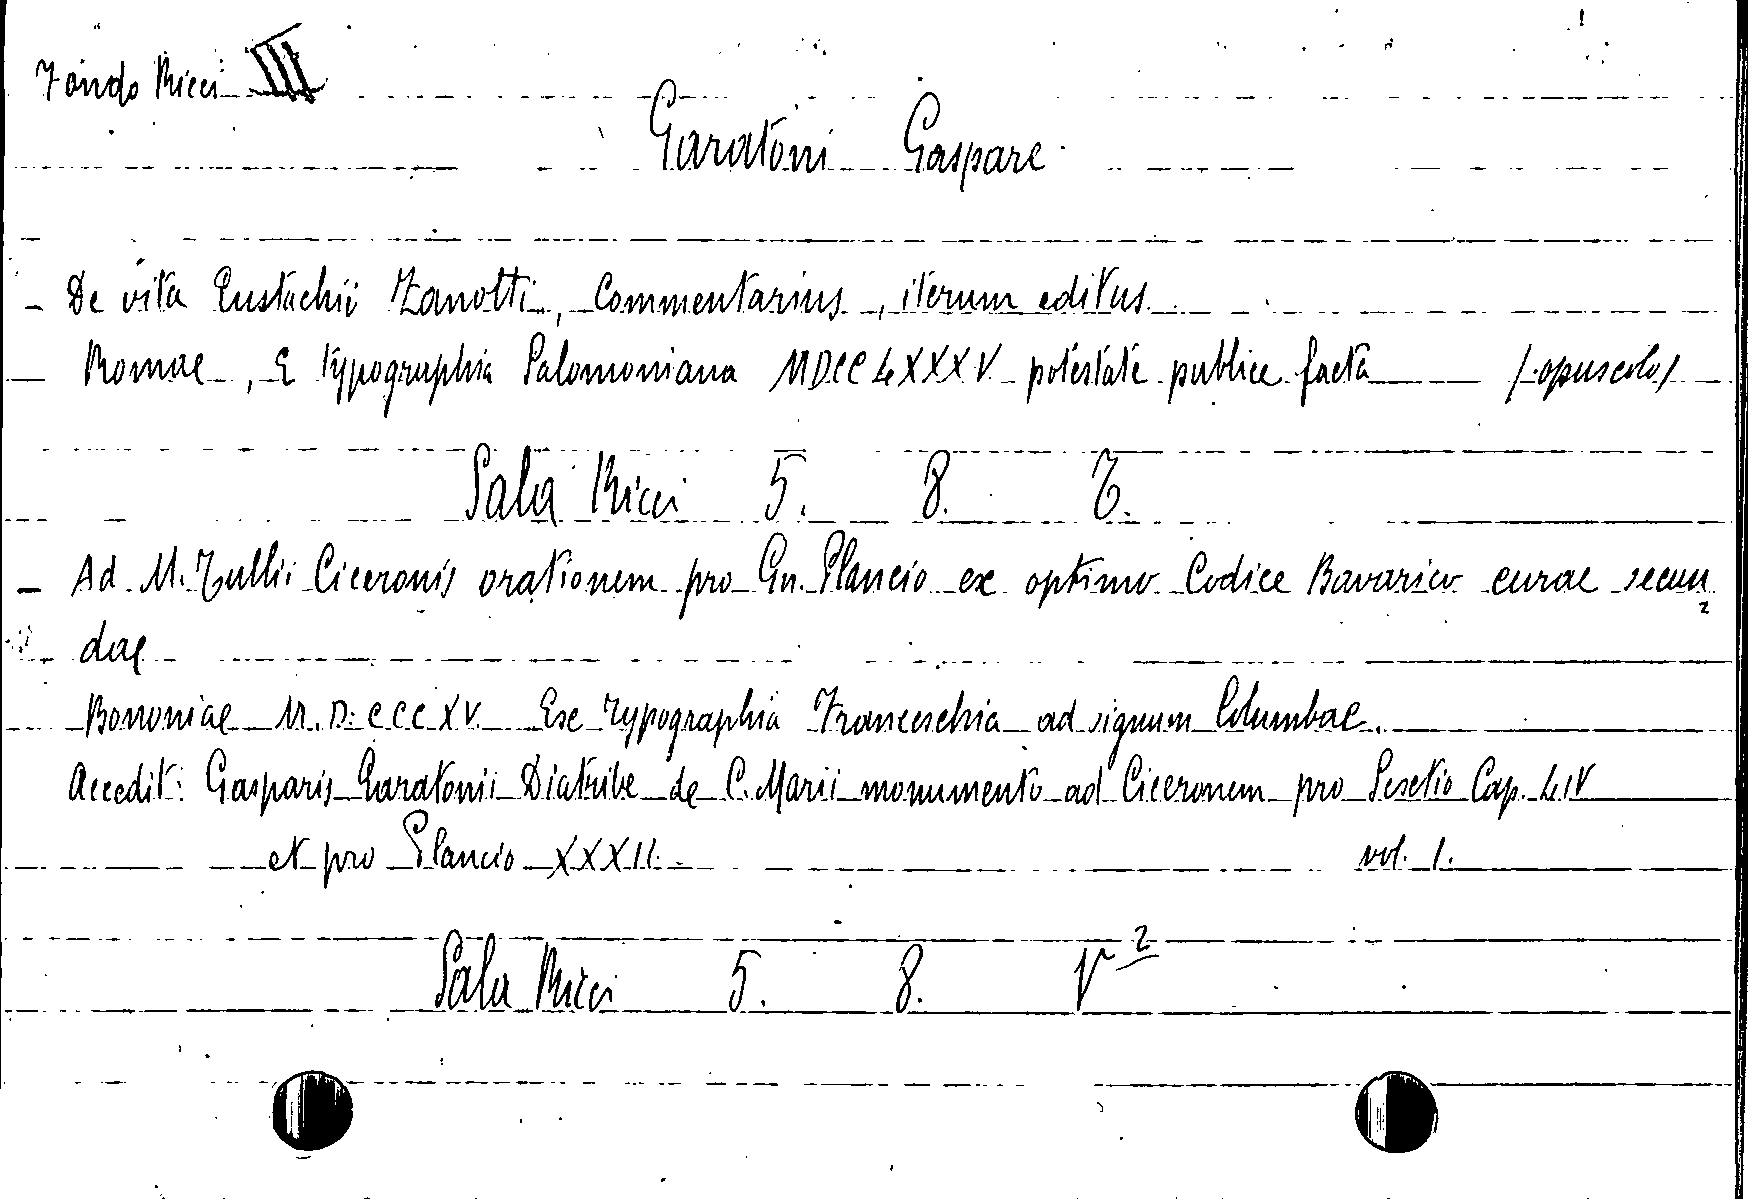 Fondo Ricci III
Garatoni Gaspare
- De vita Eustachii Zanotti, Commentarius, iterum editus
Romae, E typographia Salomoniana MDCCLXXXV potestate publice facta /opuscolo/
Sala Ricci 5. 8. T.
- Ad M. Tullii Ciceronis orationem pro Gn. Plancio ex optimo Codice Bavarico curae secun
dae
Bononiae M.D.CCCXV. Ex Typographia Franceschia ad signum Columbae.
Accedit: Gasparis Garatonii Diatribe de C. Marii monumento ad Ciceronem pro Sextio Cap. LIV
et pro Plancio XXXII. vol. 1.
Sala Ricci 5. 8. V 2